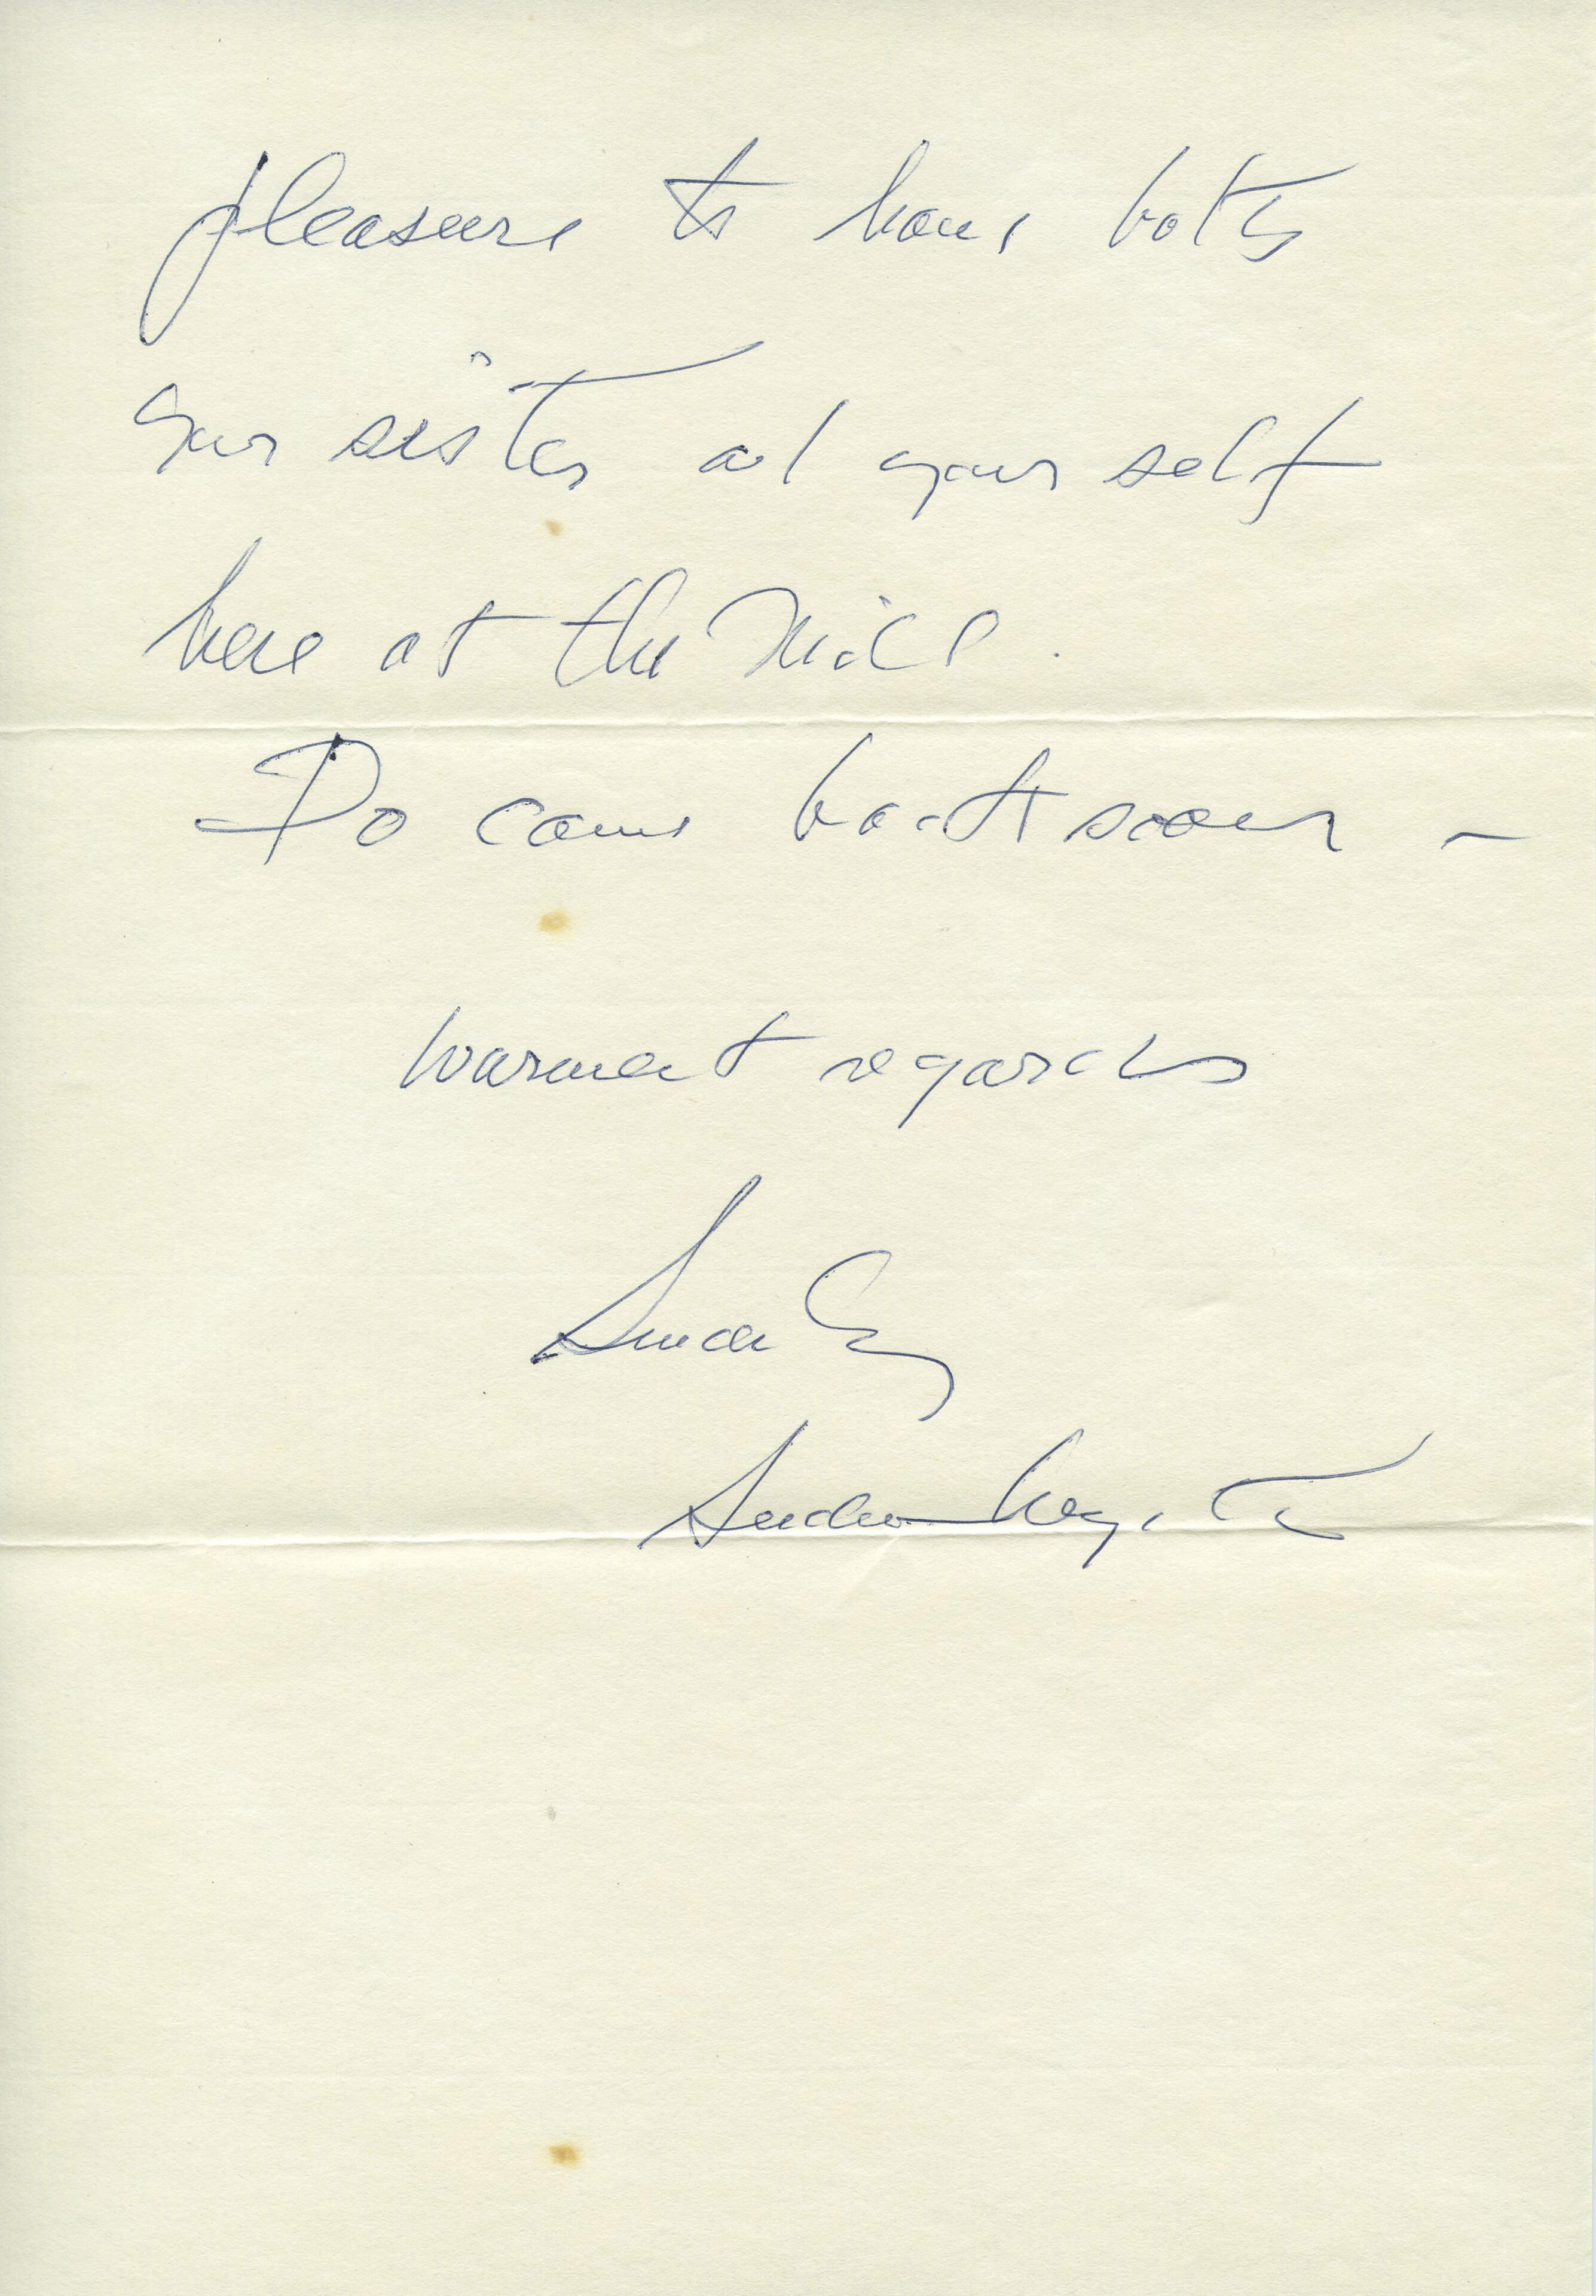 pleasure to have both
your sister and yourself
here at the Mill.
Do come back soon -
Warmest regards
Sincerely
Andrew Wyeth